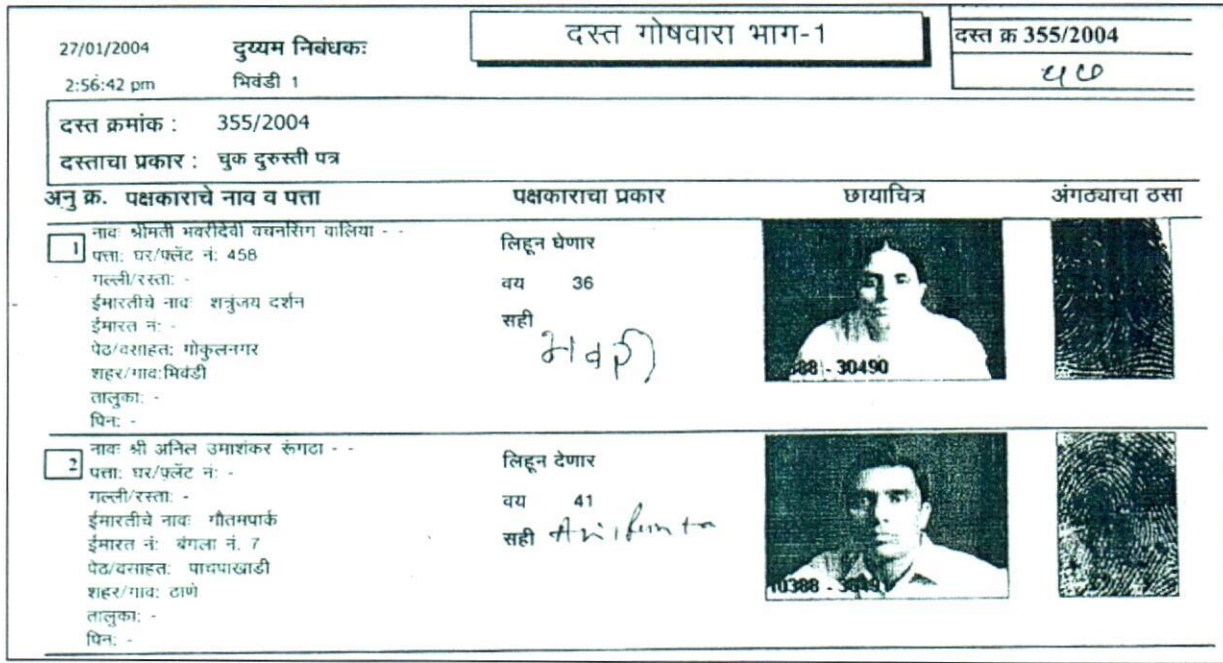 27/01/2004 दुय्यम निबंधकः
दस्त गोषवारा भाग-1
दस्त क्र 355/2004
2:56:42 pm भिवंडी 1
दस्त क्रमांक : 355/2004
दस्ताचा प्रकार : चुक दुरुस्ती पत्र
अनु क्र. पक्षकाराचे नाव व पत्ता पक्षकाराचा प्रकार छायाचित्र अंगठ्याचा ठसा
1 नावः श्रीमती भवरीदेवी वचनसिंग वालिया - -
पत्ता: घर/फ्लॅट नं: 458
गल्ली/रस्ता: -
ईमारतीचे नावः शत्रुंजय दर्शन
ईमारत नं: -
पेठ/वसाहत: गोकुलनगर
शहर/गाव:भिवंडी
तालुका: -
पिन: -
लिहून घेणार
वय 36
सही
भवरी
388 - 30490
2 नावः श्री अनिल उमाशंकर रूंगटा - -
पत्ता: घर/फ्लॅट नं: -
गल्ली/रस्ता: -
ईमारतीचे नावः गौतमपार्क
ईमारत नं: बंगला नं. 7
पेठ/वसाहत: पाचपाखाडी
शहर/गाव: ठाणे
तालुका: -
पिन: -
लिहून देणार
वय 41
सही